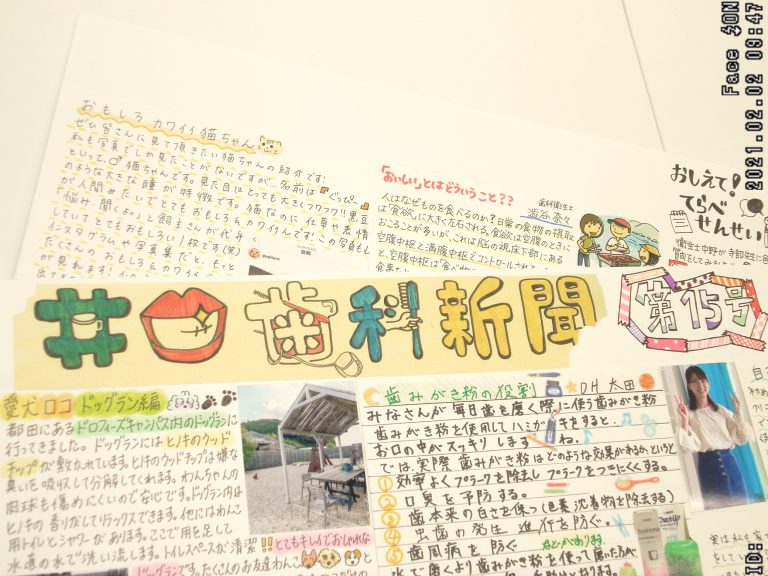 Face SON
2021.02.02 09:47
ID:
おもしろ カワイイ猫ちゃん
ぜひ皆さんに見て頂きたい猫ちゃんの紹介です!
私も写真でしか見たことがないですが…名前は『ぐっぴー』
といって、♂猫ちゃんです。見た目はとっても大きくフワフワ!!黒豆
のような大きな瞳が特徴です。猫なのに仕草や表情
が人間みたいでとてもおもしろカワイイんです!この写真も
『悩み聞くよ。』と飼主さんが代弁
していてとてもおもしろい1枚です(笑)
インスタグラムや写真集だと、もっと
たくさんのおもしろカワイイ
が見れます!
「おいしい」とはどういうこと??
歯科衛生士
澁谷 奈々
人はなぜものを食べるのか?日常の食物の摂取
は"食欲"に大きく左右される。食欲は空腹のときに
おこることが多いが、これは脳の視床下部にある
空腹中枢と満腹中枢でコントロールされ
と、空腹中枢は"食べ物
おしえて!
てらべ
せんせい
衛生士中野が寺部先生に
質問をしてみました
井口歯科新聞
第15号
愛犬ロコ ドッグラン編
都田にあるドロフィーズキャンパス内のドッグランに
行ってきました。ドッグランにはヒノキのウッド
チップが敷かれています。ヒノキのウッドチップは嫌な
臭いを吸収して分解してくれます。わんちゃんの
肉球も傷めにくいので安心です。ドッグラン内は
ヒノキの香りがしてリラックスできます。他にはわんこ
用トイレとシャワーがあります。ここで用を足して
水道の水で洗い流します。トイレスペースが清潔!!
とてもキレイでおしゃれな
ドッグランです。たくさんのお友達わんこ
歯みがき粉の役割
DH 太田
みなさんが毎日歯を磨く際に使う歯みがき粉
歯みがき粉を使用してハミガキをすると、
お口の中がスッキリしますね。
では、実際歯みがき粉はどのような効果があるかというと
①効率よくプラークを除去しプラークをつきにくくする。
②口臭を予防する。
③歯本来の白さを保つ(色素沈着物を除去する)
④虫歯の発生 進行を防ぐ。
⑤歯周病を防ぐ
などがあります。
水で磨くより歯みがき粉を使って磨いた方が
Systema
CheckUp
実は私も